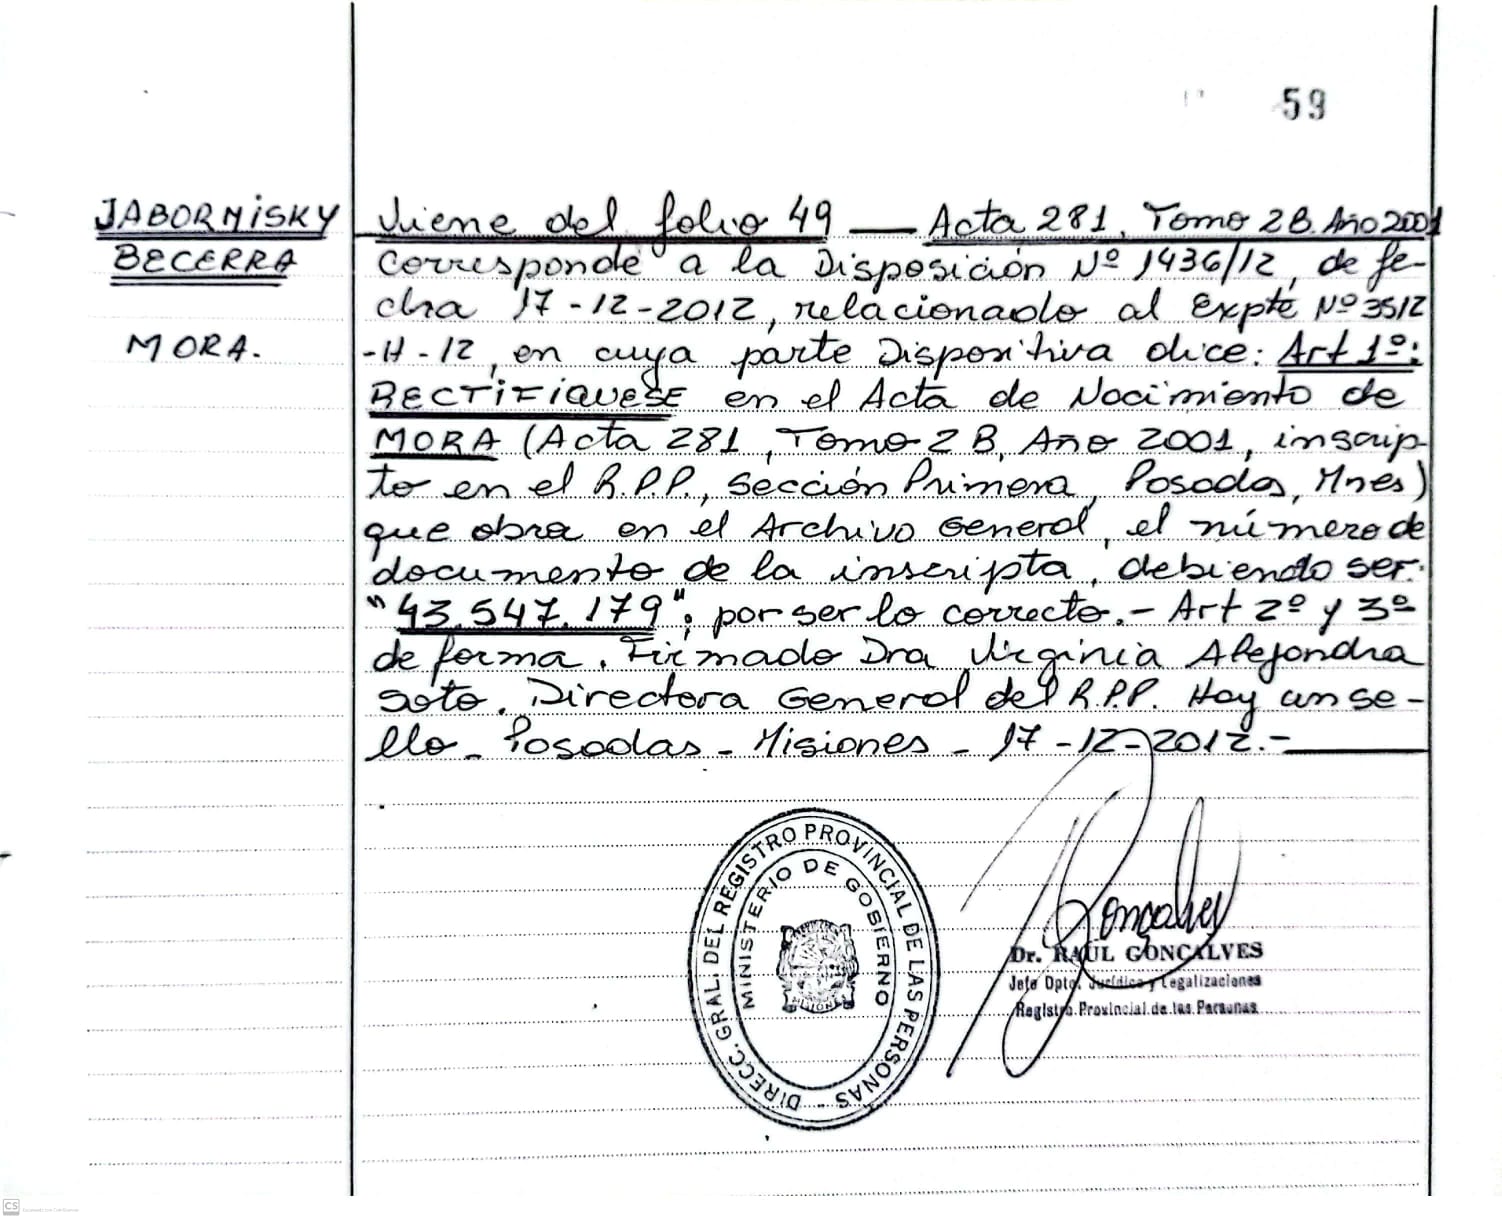 59
JABORNISKY
BECERRA
MORA.
Viene del folio 49 — Acta 281, Tomo 2B. Año 2001
Corresponde a la Disposición Nº 1436/12, de fe-
cha 17-12-2012, relacionado al Expte Nº 3512
-H-12, en cuya parte Dispositiva dice: Art 1º:
RECTIFIQUESE en el Acta de Nacimiento de
MORA (Acta 281, Tomo 2B, Año 2001, inscrip-
to en el R.P.P., Sección Primera, Posadas, Mnes)
que obra en el Archivo General, el número de
documento de la inscripta, debiendo ser:
"43.547.179"; por ser lo correcto.- Art 2º y 3º
de forma. Firmado Dra Virginia Alejandra
Soto. Directora General del R.P.P. Hay un se-
llo - Posadas - Misiones - 17-12-2012.-
DIRECC. GRAL. DEL REGISTRO PROVINCIAL DE LAS PERSONAS -
MINISTERIO DE GOBIERNO
MISIONES
Goncalves
Dr. RAUL GONCALVES
Jefe Dpto. Jurídica y Legalizaciones
Registro Provincial de las Personas
CS